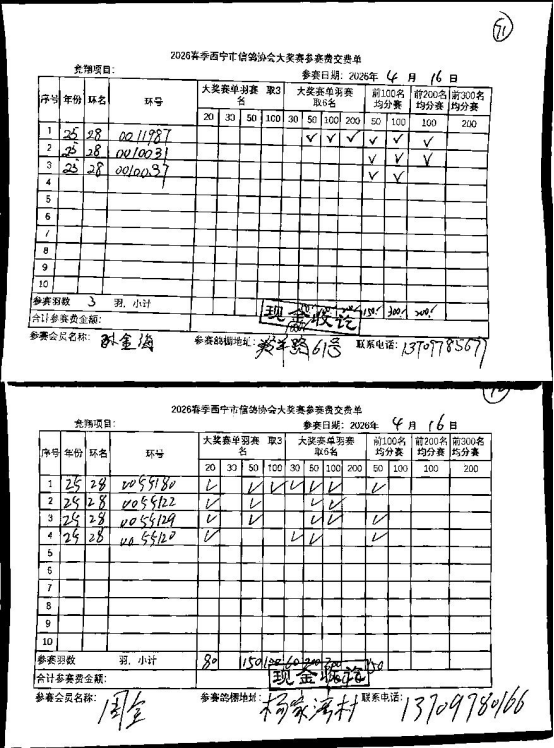 71
2026春季西宁市信鸽协会大奖赛参赛费交费单
竞翔项目： 参赛日期：2026年 4 月 16 日
序号 年份 环名 环号 大奖赛单羽赛 取3名 大奖赛单羽赛 取6名 前100名均分赛 前200名均分赛 前300名均分赛
20 30 50 100 30 50 100 200 50 100 100 200
1 25 28 0011987 ✓ ✓ ✓ ✓ ✓ ✓
2 25 28 0010031 ✓ ✓ ✓
3 25 28 0010037 ✓ ✓
4
5
6
7
8
9
10
参赛羽数 3 羽，小计 150 300 200
合计参赛费金额： 现金收讫
参赛会员名称： 孙金海 参赛鸽棚地址： 路61号 联系电话：
2026春季西宁市信鸽协会大奖赛参赛费交费单
竞翔项目： 参赛日期：2026年 4 月 16 日
序号 年份 环名 环号 大奖赛单羽赛 取3名 大奖赛单羽赛 取6名 前100名均分赛 前200名均分赛 前300名均分赛
20 30 50 100 30 50 100 200 50 100 100 200
1 25 28 0055180 ✓ ✓ ✓ ✓ ✓ ✓ ✓
2 25 28 0055122 ✓ ✓ ✓ ✓
3 25 28 0055129 ✓ ✓ ✓ ✓ ✓
4 25 28 0055120 ✓ ✓ ✓ ✓
5
6
7
8
9
10
参赛羽数 羽，小计 80 150 100 60 200 150
合计参赛费金额： 现金收讫
参赛会员名称： 周全 参赛鸽棚地址： 杨家湾村 联系电话： 13709780166